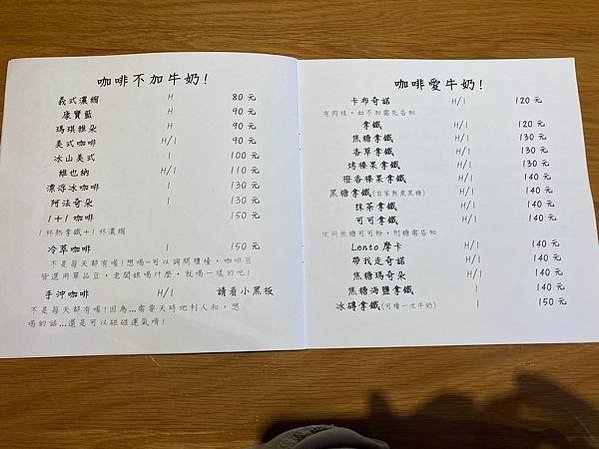 咖啡不加牛奶!
義式濃縮 H 80 元
康寶藍 H 90 元
瑪琪雅朵 H 90 元
美式咖啡 H/I 90 元
冰山美式 I 100 元
維也納 H/I 110 元
濃浮冰咖啡 I 130 元
阿法奇朵 I 130 元
1+1 咖啡 150 元
1杯熱拿鐵+1杯濃縮
冷萃咖啡 I 150 元
不是每天都有喔!想喝~可以詢問櫃檯,咖啡豆
皆選用單品豆,老闆娘喝什麼,就喝一樣的吧!
手沖咖啡 H/I 請看小黑板
不是每天都有喔!因為...需要天時地利人和,想
喝的話...還是可以碰碰運氣唷!
咖啡愛牛奶!
卡布奇諾 H/I 120 元
有肉桂,如不加需先告知
拿鐵 H/I 120 元
焦糖拿鐵 H/I 130 元
香草拿鐵 H/I 130 元
烤榛果拿鐵 H/I 130 元
橙香榛果拿鐵 H/I 140 元
黑糖拿鐵(自家熬煮黑糖) H/I 140 元
抹茶拿鐵 H/I 140 元
可可拿鐵 H/I 140 元
使用無糖可可粉,附糖需告知
Lento 摩卡 H/I 140 元
帶我走奇諾 H/I 140 元
焦糖瑪奇朵 H/I 140 元
焦糖海鹽拿鐵 I 140 元
冰磚拿鐵(可續一次牛奶) I 150 元